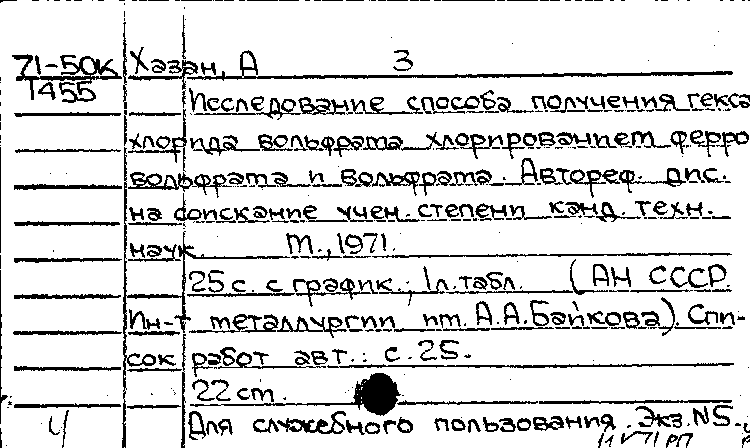 71-50К Хазан, А З
1455
Исследование способа получения гекса
хлорида вольфрата хлорированием ферро
вольфрата и вольфрата. Автореф. дис.
на соискание учен. степени канд. техн.
наук. М., 1971.
25 с. с график.; 1 л. табл. (АН СССР.
Ин-т металлургии им. А.А. Байкова). Спи-
сок работ авт.: с. 25.
22 см.
Для служебного пользования. Экз. N5.